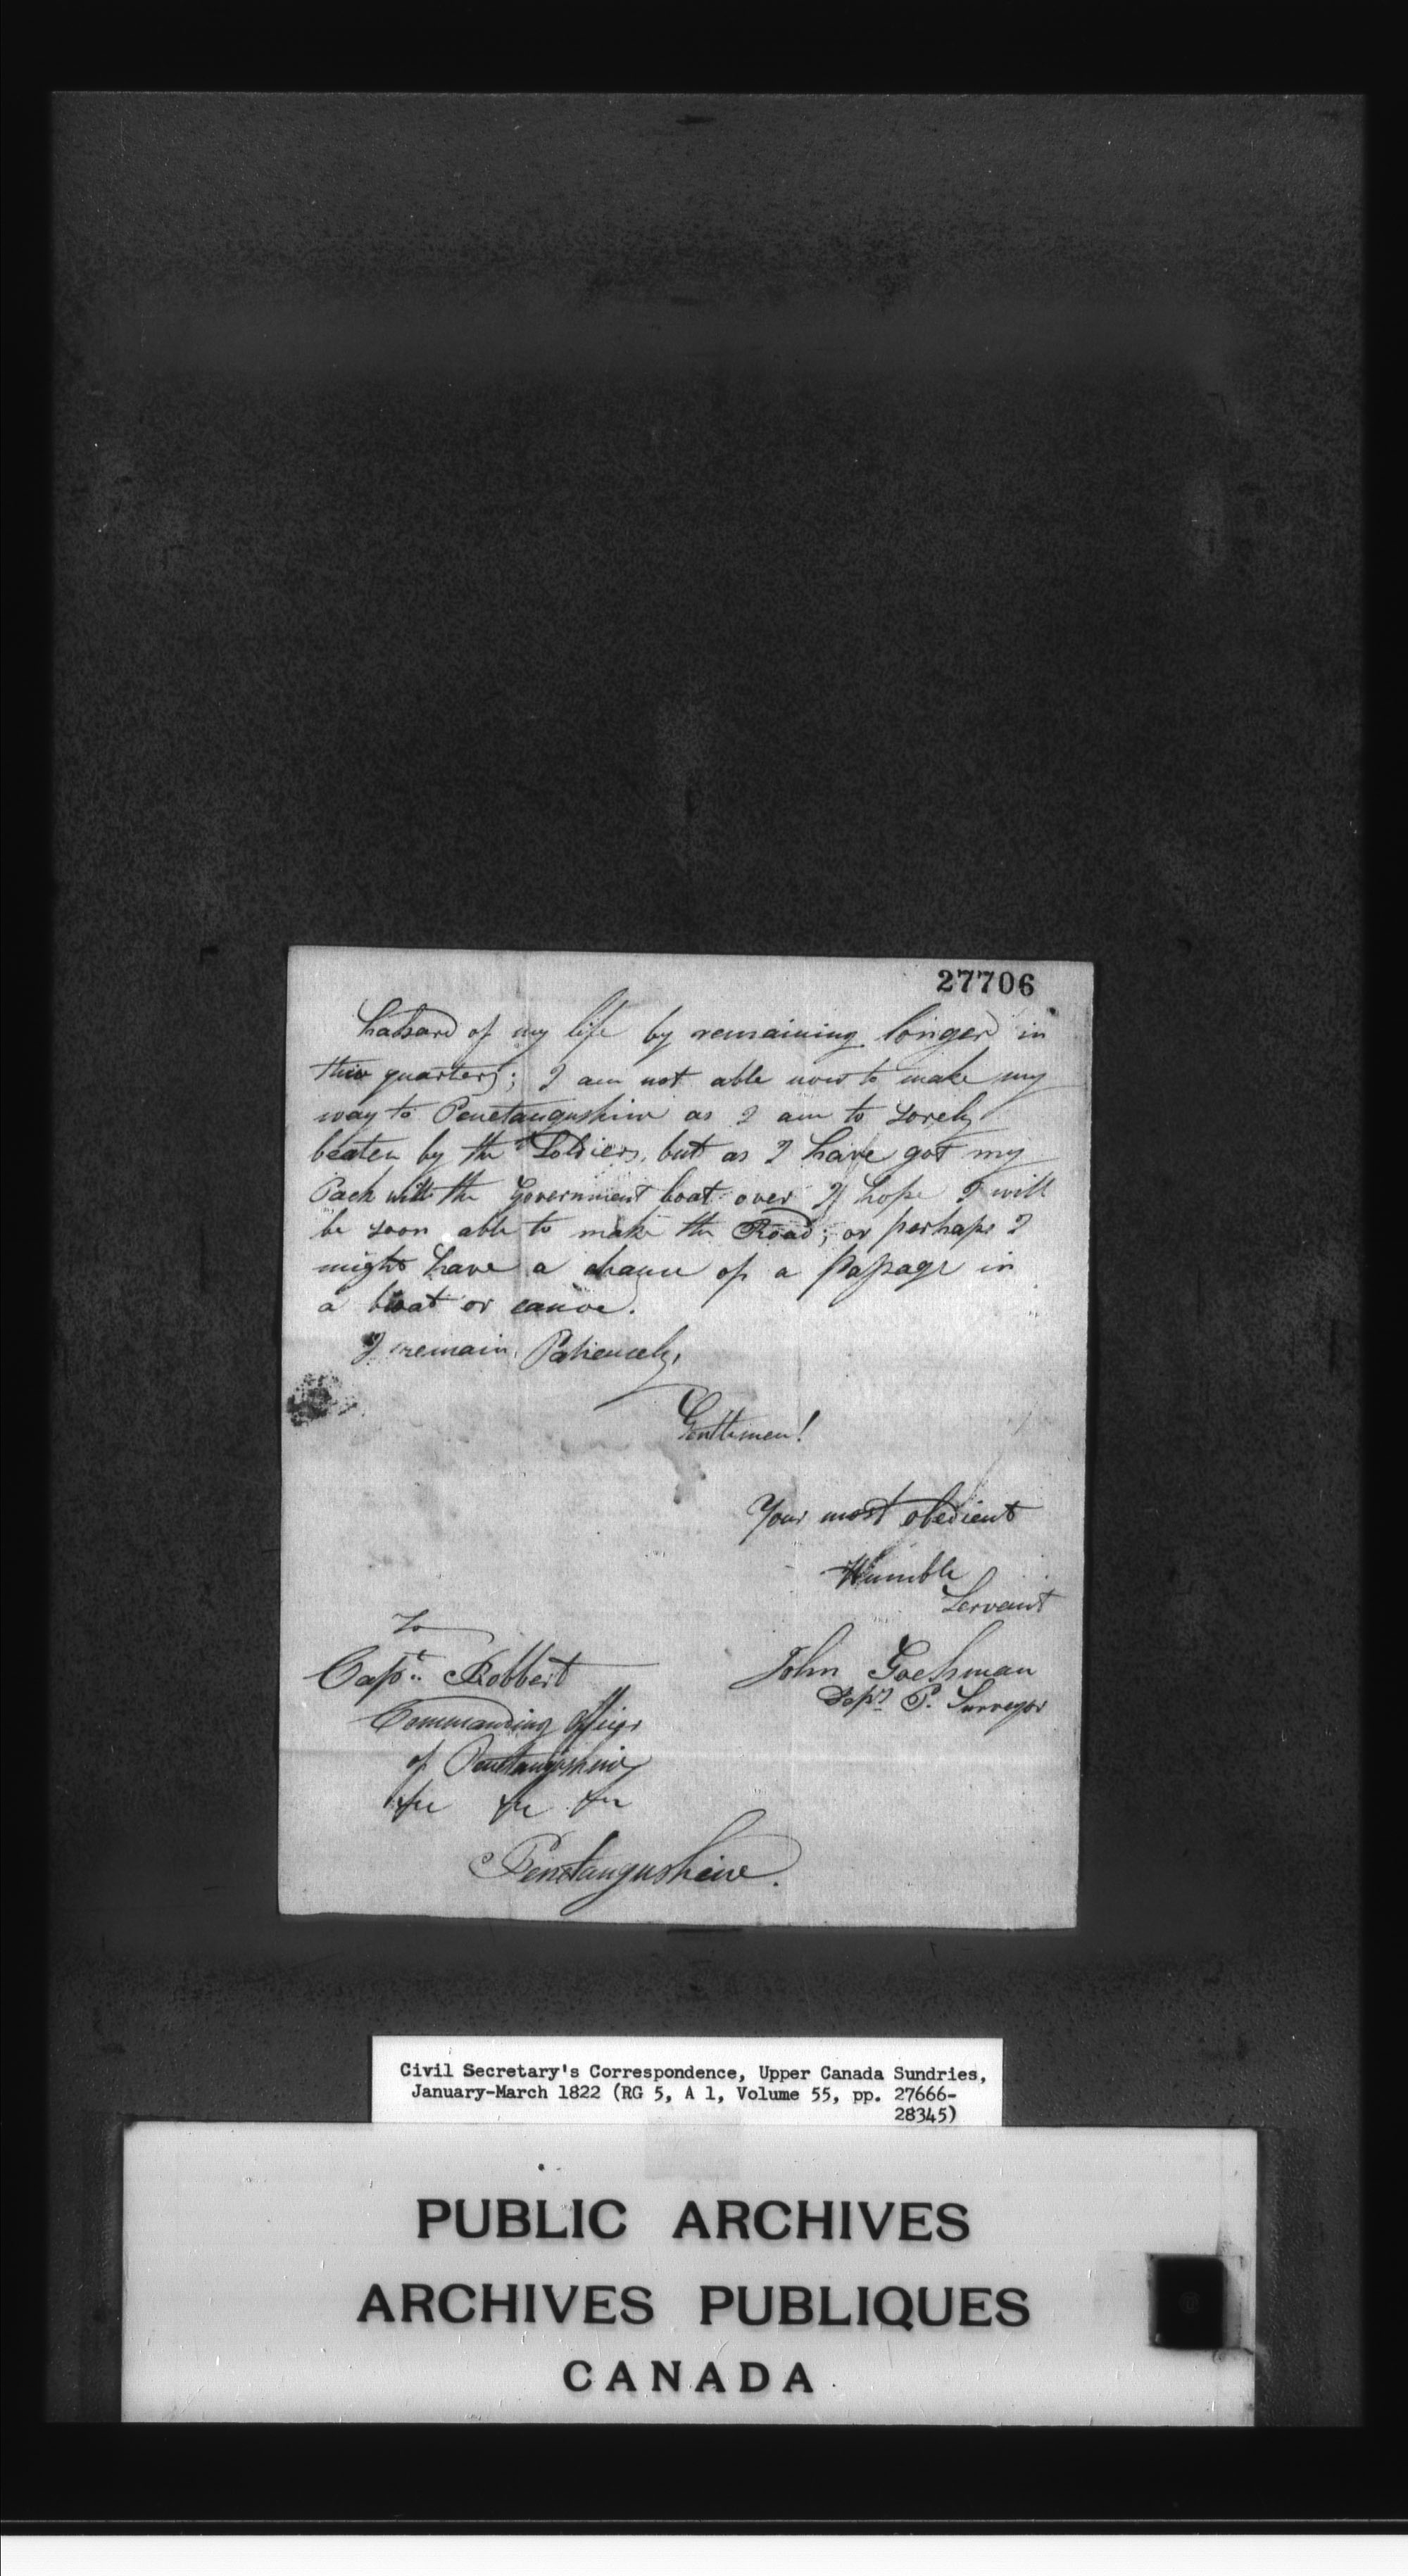 27706
hatsard of my life by remaining longer in
this quarters; I am not able now to make my
way to Penetangushine as I am to sorely
beaten by the Soldiers, but as I have got my
Pack with the Government boat over I hope I will
be soon able to make the Road; or perhaps I
might have a chance of a passage in
a boat or canoe.
I remain Patiencely,
Gentlemen!
Your most obedient
Humble
Servant
To
Capt. Robbert
John Goehman
Depy P. Surveyor
Commanding Officer
of Penetangushine
&c &c &c
Penetangushine.
Civil Secretary's Correspondence, Upper Canada Sundries,
January-March 1822 (RG 5, A 1, Volume 55, pp. 27666-
28345)
PUBLIC ARCHIVES
ARCHIVES PUBLIQUES
CANADA